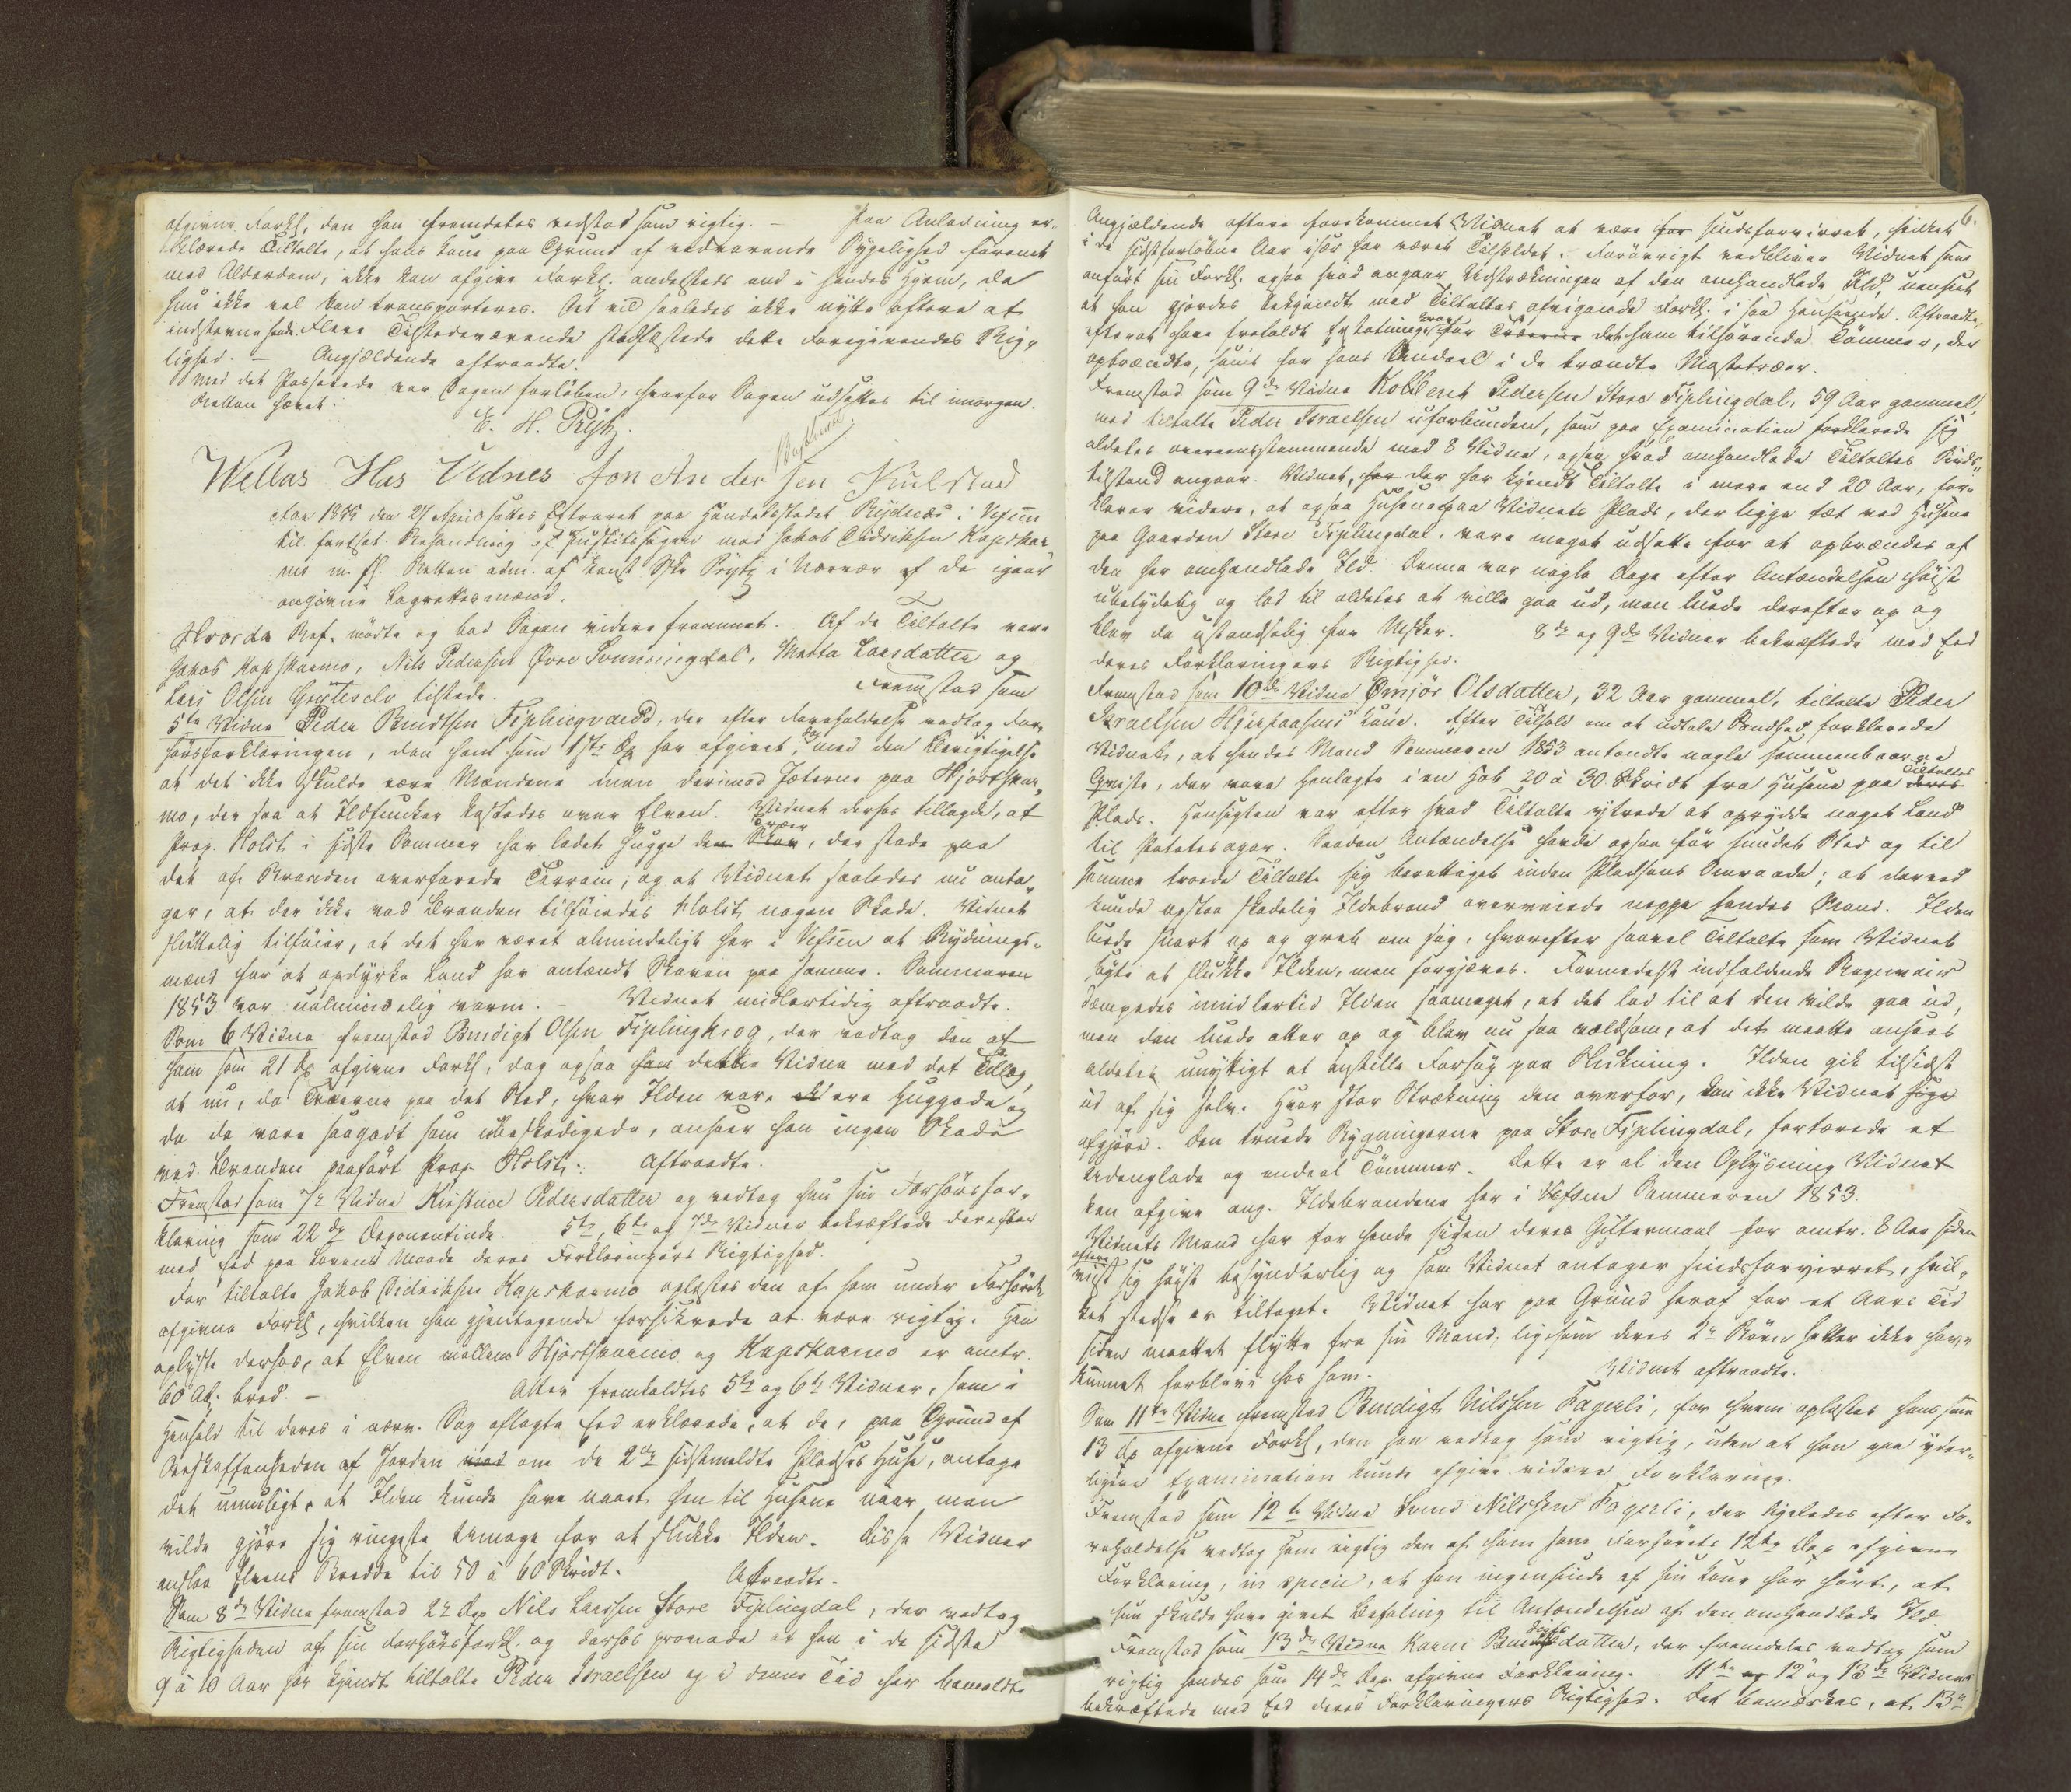 afgivne Forkl., den han fremdeles vedstod som rigtig. — Paa Anledning er-
klærede Tiltalte, at hans Kone paa Grund af vedvarende Sygelighed forenet
med Alderdom, ikke kan afgive Forkl. andetsteds end i hendes Hjem, da
hun ikke vel kan transporteres. Det vil saaledes ikke nytte oftere at
indstevne hende. Flere Tilstedeværende stadfæstede dette Foregivendes Rig-
tighed. — Angjældende aftraadte.
Med det Passerede var Dagen forløben, hvorfor Sagen udsættes til imorgen.
Retten hævet.
E. H. Prytz.
Wellas Has Udnes Jon Andersen Kulstad
Aar 1855 den 27 April sattes Extraret paa Handelsstedet Rÿdnæs i Vefsen
til fortsat Behandling af Justitssagen mod Jakob Didriksen Kapskar-
mo m. fl. Retten adm. af Const Sskr Prÿtz i Nærvær af de igaar
angivne Lagrettesmænd.
Hvorda Ref. mødte og bad Sagen videre fremmet. Af de Tiltalte vare
Jakob Kapskarmo, Nils Pedersen Øvre Svenningdal, Marta Larsdatter og
Lars Olsen Gryteselv tilstede. Fremstod som
5te Vidne Peder Bendtsen Fiplingvold, der efter Foreholdelse vedtog For-
hørsforklaringen, den han som 1ste Dp har afgivet, dog med den Berigtigelse
at det ikke skulde være Mændene men derimod Jæterne paa Hjortskar-
mo, der saa at Ildfunker kastedes over Elven. Vidnet derhos tillagde, at
Prop. Holst i sidste Sommer har ladet hugge den Træer, der stode paa
det af Branden overfarede Terrain, og at Vidnet saaledes nu anta-
ger, at der ikke ved Branden tilføiedes Holst nogen Skade. Vidnet
sluttelig tilføier, at det har været almindeligt her i Vefsen at Rydnings-
mænd for at opdyrke Land har antændt Skoven paa samme. Sommeren
1853 var ualmindelig varm. — Vidnet midlertidig aftraadte.
Som 6 Vidne fremstod Bendigt Olsen Fiplingkrog, der vedtog den af
ham som 21 Dp afgivne Forkl., dog ogsaa dette Vidne med det Tillæg,
at nu, da Træerne paa det Sted, hvor Ilden var, ere huggede og
da de vare saagodt som ubeskadigede, anseer han ingen Skade
ved Branden paaført Prop. Holst. Aftraadte.
Fremstod som 7de Vidne Kirstine Pedersdatter og vedtog hun sin Forhørsfor-
klaring som 22 dp Deponentinde. 5te, 6te og 7de Vidner bekræftede derefter
med Ed paa Lovens Maade deres Forklaringers Rigtighed.
For tiltalte Jakob Didriksen Kapskarmo oplæstes den af ham under Forhøret
afgivne Forkl., hvilken han gjentagende forsikrede at være rigtig. Han
oplyste derhos, at Elven mellem Hjortskarmo og Kapskarmo er omtr.
60 Al. bred. — Atter fremkaldtes 5te og 6te Vidner, som i
Henhold til deres i nærv. Sag aflagte Ed erklærede, at de, paa Grund af
Beskaffenheden af Jorden om de 2de sidstmeldte Pladses Huse, antage
det umuligt, at Ilden kunde have naaet hen til Husene naar man
vilde gjøre sig ringeste Umage for at slukke Ilden. Disse Vidner
ansloe Elvens Bredde til 50 à 60 Skridt. Aftraadte.
Som 8de Vidne fremstod 2de Dp Nils Larssen Store Fiplingdal, der vedtog
Rigtigheden af sin Forhørsforkl. og derhos provede at han i de sidste
9 à 10 Aar har kjendt tiltalte Peder Israelsen og i denne Tid har bemeldte
6.
Angjældende oftere forekommet Vidnet at være sindsforvirret, hvilket
i de sidstforløbne Aar især har været Tilfældet. Forøvrigt vedbliver Vidnet som
anført sin Forkl. ogsaa hvad angaar Udstrækningen af den omhandlede Ild, uanset
at han gjordes bekjendt med Tiltaltes afvigende Forkl. i saa Henseende. Aftraadte,
efterat have frafaldt Erstatning for det ham tilhørende Tømmer, der
opbrændte, samt for hans Andeel i de brændte Mastetræer.
Fremstod som 9de Vidne Kolbent Pedersen Store Fiplingdal, 59 Aar gammel,
med tiltalte Peder Israelsen uforbunden, som paa Examination forklarede sig
aldeles overeensstemmende med 8 Vidne, ogsaa hvad omhandlede Tiltaltes Sinds-
tilstand angaar. Vidnet, der har kjendt Tiltalte i mere end 20 Aar, for-
klarer videre, at ogsaa Husene paa Vidnets Plads, der ligge tæt ved Husene
paa Gaarden Store Fiplingdal, vare meget udsatte for at opbrændes af
den her omhandlede Ild. Denne var nogle Dage efter Antændelsen høist
ubetydelig og lod til aldeles at ville gaa ud, men luede derefter op og
blev da ustandselig for Msker. 8de og 9de Vidner bekræftede med Ed
deres Forklaringers Rigtighed.
Fremstod som 10de Vidne Ømjør Olsdatter, 32 Aar gammel, tiltalte Peder
Israelsen Kone. Efter Tilhold om at udtale Sandhed, forklarede
Vidnet, at hendes Mand Sommeren 1853 antændte nogle sammenbaarne
Qviste, der vare henlagte i en Hob 20 à 30 Skridt fra Husene paa Tiltaltes
Plads. Hensigten var efter hvad Tiltalte ytrede at oprydde noget Land
til Potetesager. Saadan Antændelse havde ogsaa før fundet Sted og til
samme troede Tiltalte sig berettiget inden Pladsens Omraade; at derved
kunde opstaa skadelig Ildebrand overveiede neppe hendes Mand. Ilden
luede snart op og greb om sig, hvorefter saavel Tiltalte som Vidnet
søgte at slukke Ilden, men forgjæves. Formedelst indfaldende Regnveir
dæmpedes imidlertid Ilden saameget, at det lod til at den vilde gaa ud,
men den luede atter op og blev nu saa voldsom, at det maatte ansees
aldeles unyttigt at anstille Forsøg paa Slukning. Ilden gik tilsidst
ud af sig selv. Hvor stor Strækning den overfor, kan ikke Vidnet sige
afgjøre. Den truede Bygningerne paa Store Fiplingdal, fortærede et
og endeel Tømmer. Dette er al den Oplysning Vidnet
kan afgive ang. Ildebrandene her i Vefsen Sommeren 1853.
Vidnets Mand har for hende siden deres Giftermaal for omtr. 8 Aar siden
oftere viist sig høist besynderlig og som Vidnet antager sindsforvirret, hvil-
ket stedse er tiltaget. Vidnet har paa Grund heraf for et Aars Tid
siden maattet flytte fra sin Mand, ligesom deres 2de Børn heller ikke have
kunnet forblive hos ham. Vidnet aftraadte.
Som 11te Vidne fremstod Bendigt Nilssen Fagerli, for hvem oplæstes hans som
13 Dp afgivne Forkl., den han vedtog som rigtig, uden at han paa yder-
ligere Examination kunde afgive videre Forklaring.
Fremstod som 12te Vidne Svend Nilssen Fagerli, der ligeledes efter Fo-
reholdelse vedtog som rigtig den af ham som Forhørets 12te Dep afgivne
Forklaring, in specie, at han ingensinde af sin Kone har hørt, at
hun skulde have givet Befaling til Antændelsen af den omhandlede Ild.
Fremstod som 13de Vidne Karen Bendigtsdatter, der fremdeles vedtog som
rigtig hendes som 14de Dep. afgivne Forklaring. 11te 12 og 13de Vidner
bekræftede med Ed deres Forklaringers Rigtighed. Det bemærkes, at 13de